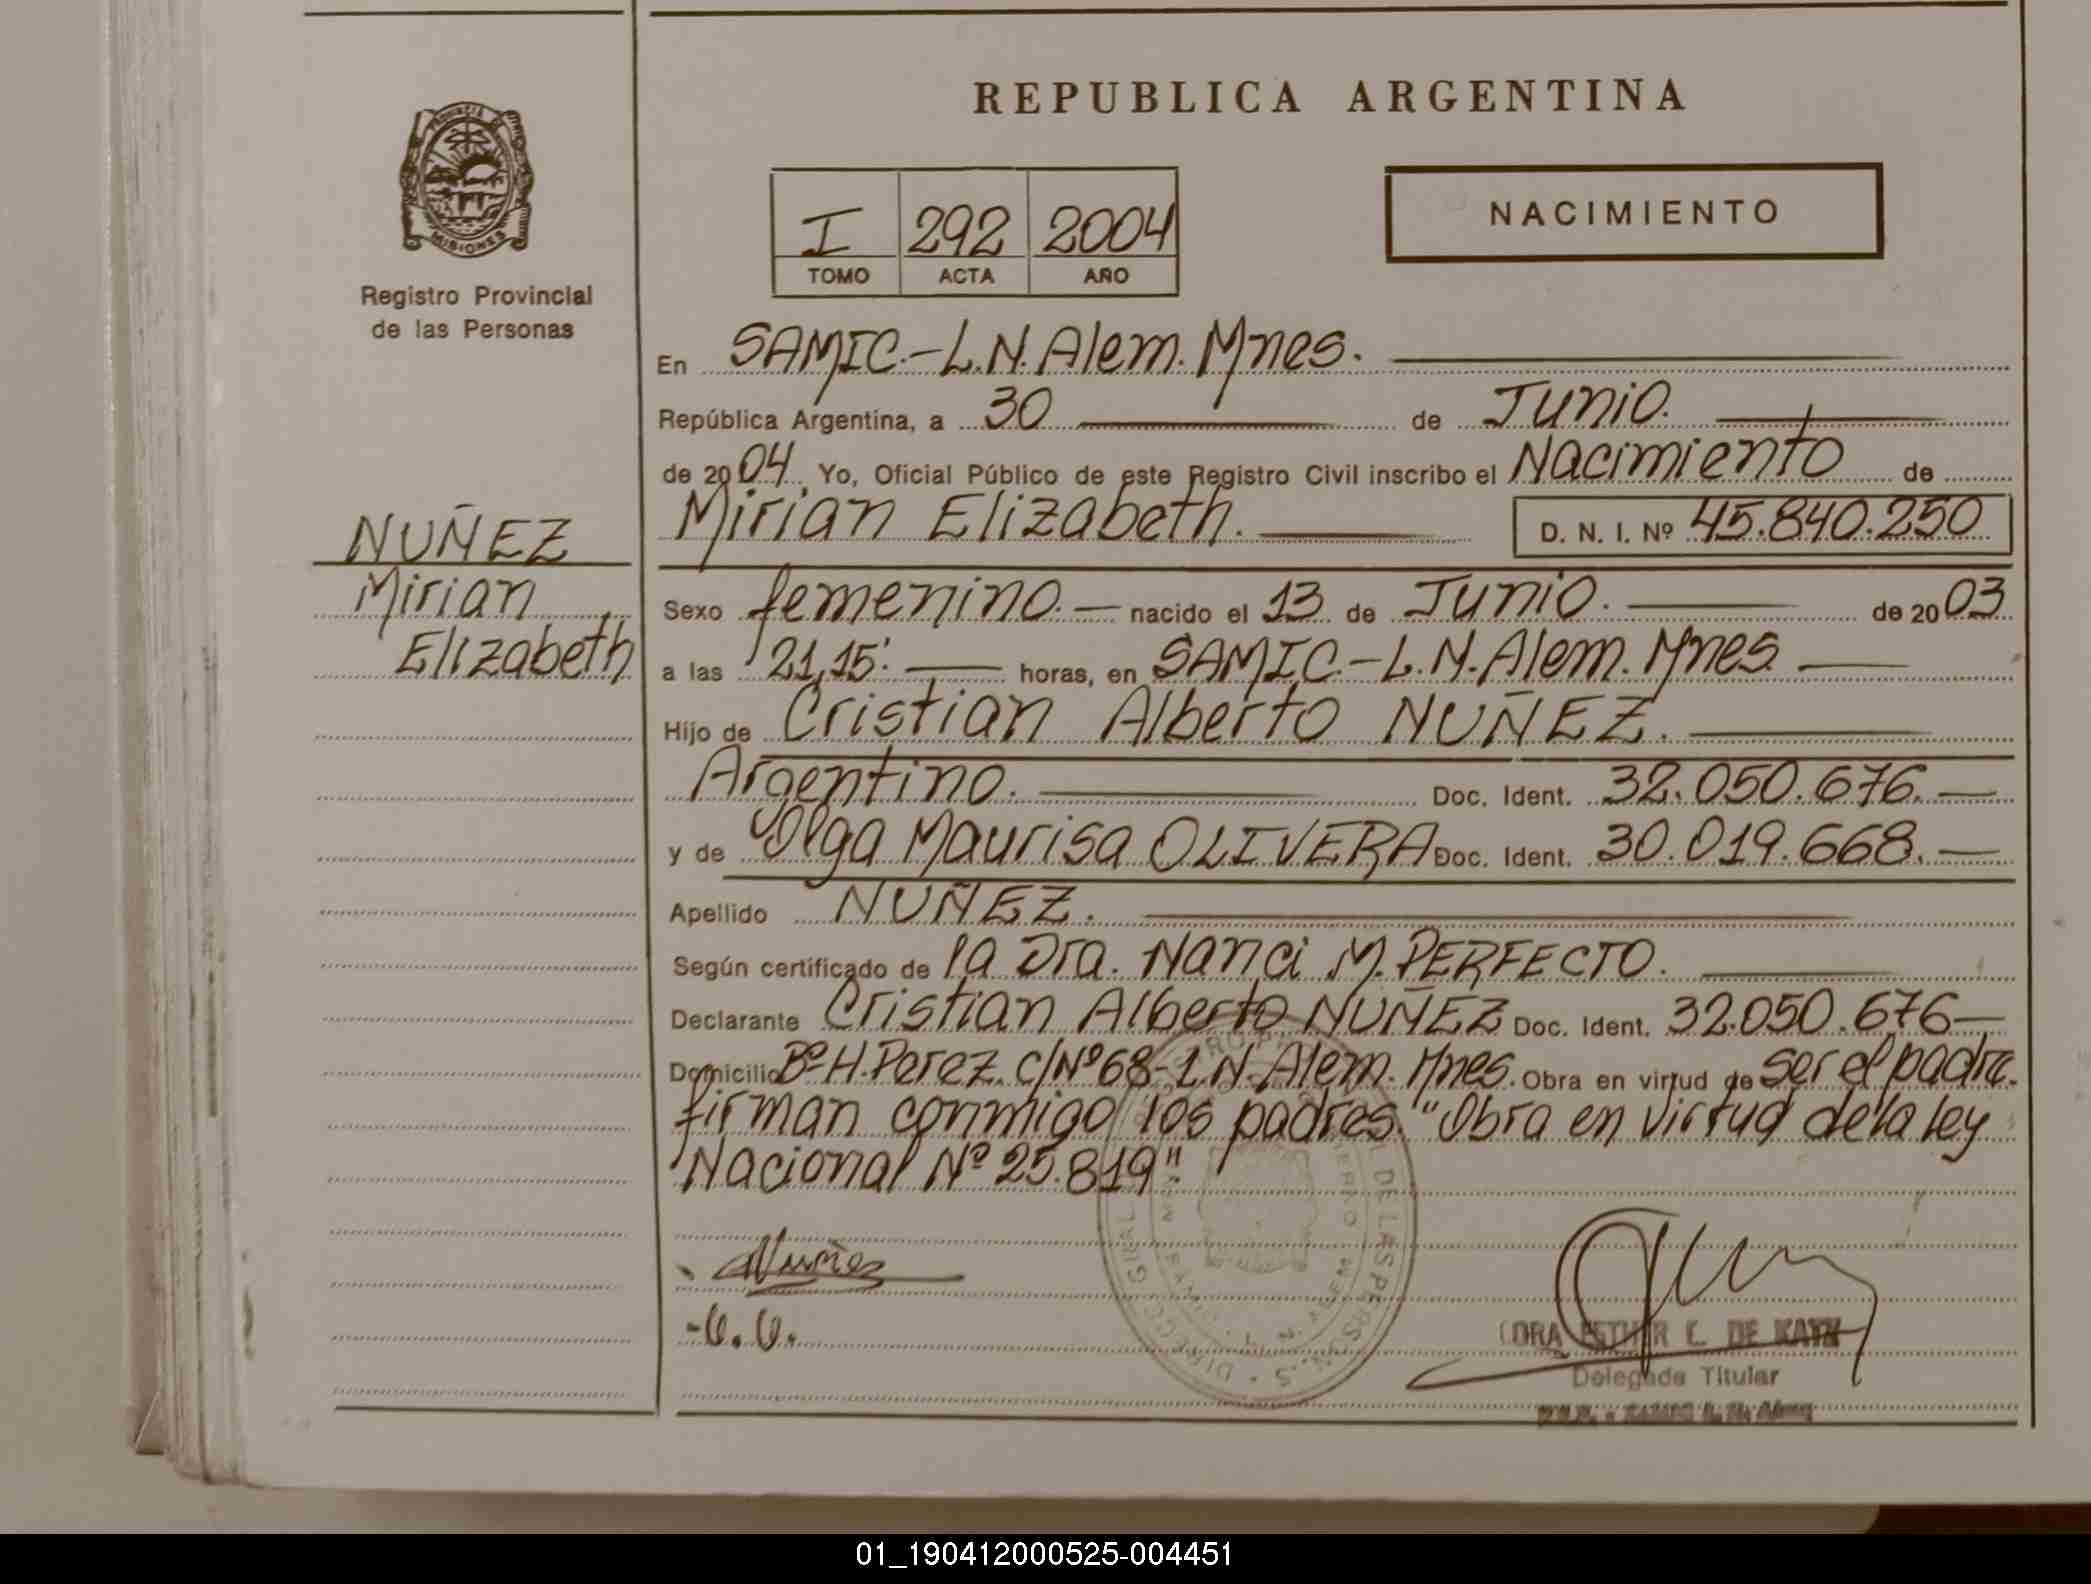 REPUBLICA ARGENTINA
PROVINCIA DE
MISIONES
Registro Provincial
de las Personas
NACIMIENTO
I 292 2004
TOMO ACTA AÑO
En SAMIC.-L.N.Alem. Mnes.
República Argentina, a 30 de Junio.
de 2004. Yo, Oficial Público de este Registro Civil inscribo el Nacimiento de
NUÑEZ
Mirian
Elizabeth
Mirian Elizabeth. D. N. I. Nº 45.840.250
Sexo femenino. nacido el 13 de Junio. de 2003
a las 21,15'. horas, en SAMIC.-L.N.Alem. Mnes.
Hijo de Cristian Alberto NUÑEZ.
Argentino. Doc. Ident. 32.050.676.
y de Olga Maurisa OLIVERA Doc. Ident. 30.019.668.
Apellido NUÑEZ.
Según certificado de la Dra. Nanci M. PERFECTO.
Declarante Cristian Alberto NUÑEZ Doc. Ident. 32.050.676
Domicilio Bº H. Perez. c/Nº 68-L.N.Alem. Mnes. Obra en virtud de ser el padre.
firman conmigo los padres. "Obra en virtud de la ley
Nacional Nº 25.819".
Nuñez
-O.O.
ESTHER DE
Delegada Titular
01_190412000525-004451